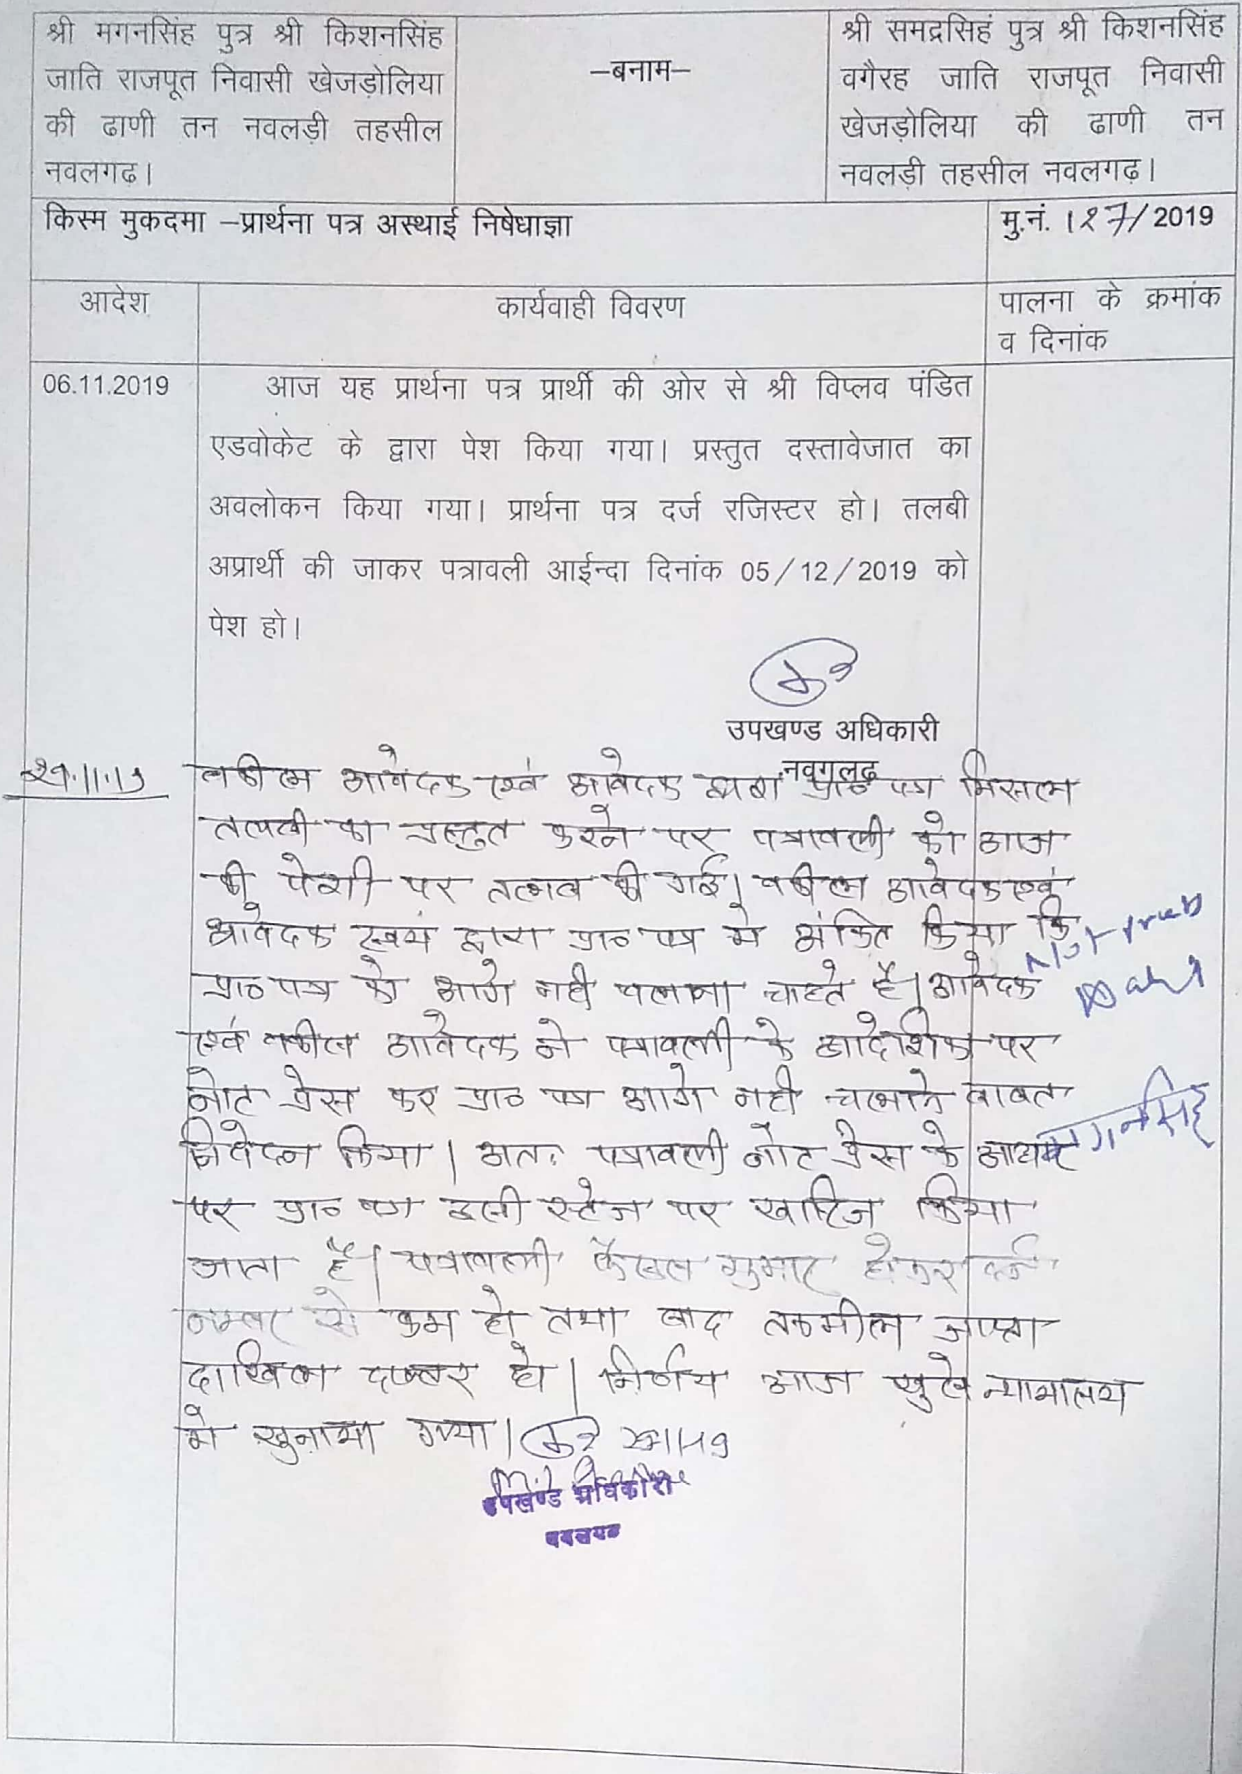 श्री मगनसिंह पुत्र श्री किशनसिंह
जाति राजपूत निवासी खेजड़ोलिया
की ढाणी तन नवलड़ी तहसील
नवलगढ।
–बनाम–
श्री समद्रसिहं पुत्र श्री किशनसिंह
वगैरह जाति राजपूत निवासी
खेजड़ोलिया की ढाणी तन
नवलड़ी तहसील नवलगढ़।
किस्म मुकदमा –प्रार्थना पत्र अस्थाई निषेधाज्ञा
मु.नं. 127/2019
आदेश
कार्यवाही विवरण
पालना के क्रमांक
व दिनांक
06.11.2019
आज यह प्रार्थना पत्र प्रार्थी की ओर से श्री विप्लव पंडित
एडवोकेट के द्वारा पेश किया गया। प्रस्तुत दस्तावेजात का
अवलोकन किया गया। प्रार्थना पत्र दर्ज रजिस्टर हो। तलबी
अप्रार्थी की जाकर पत्रावली आईन्दा दिनांक 05/12/2019 को
पेश हो।
उपखण्ड अधिकारी
नवगलढ
वकील आवेदक एवं आवेदक द्वारा प्रा० पत्र मिसल
तलबी का प्रस्तुत करने पर पत्रावली को आज
की पेशी पर तलब की गई। वकील आवेदक एवं
आवेदक स्वयं द्वारा प्रा० पत्र मे अंकित किया कि
प्रा० पत्र को आगे नही चलाना चाहते है। आवेदक
एवं वकील आवेदक ने पत्रावली के आदेशिका पर
नोट प्रेस कर प्रा० पत्र आगे नही चलाने बाबत
निवेदन किया। अतः पत्रावली नोट प्रेस के आधार
पर प्रा० पत्र इसी स्टेज पर खारिज किया
जाता है। पत्रावली फैसल शुमार होकर दर्ज
नम्बर से कम हो तथा बाद तकमील जाप्ता
दाखिल दफ्तर हो। निर्णय आज खुले न्यायालय
मे सुनाया गया।
Not press
मगनसिंह
उपखण्ड अधिकारी
नवलगढ